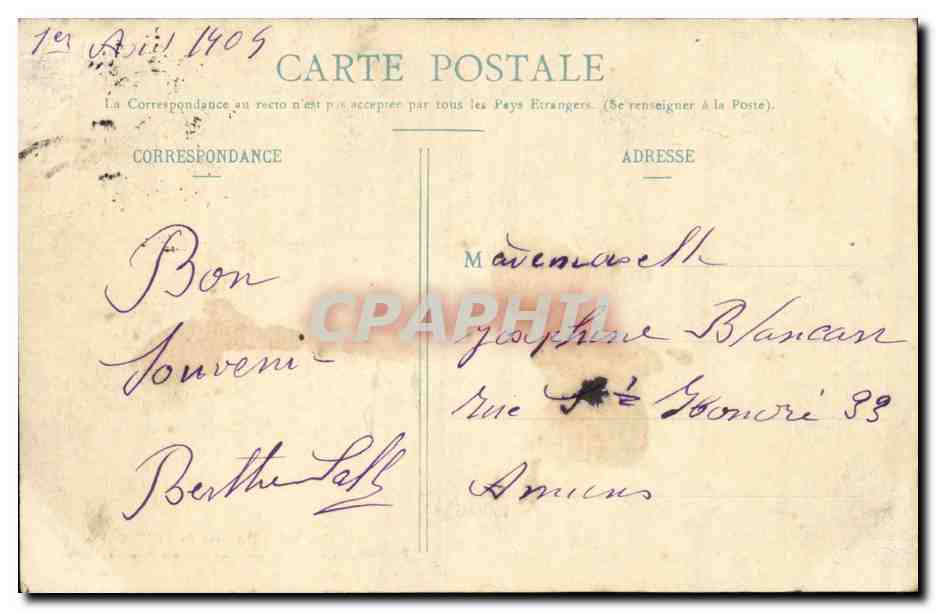 1er Avril 1905
CARTE POSTALE
La Correspondance au recto n'est pas acceptée par tous les Pays Etrangers. (Se renseigner à la Poste).
CORRESPONDANCE
ADRESSE
Bon
Souvenir
Berthe
Mademoiselle
Josephine Blancart
rue St Honoré 33
Amiens
CPAPHIL